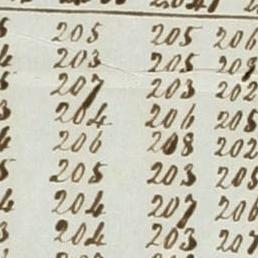 205 205 206
203 205 208
207 203 202
204 206 205
206 208 202
205 203 205
204 207 206
204 203 207